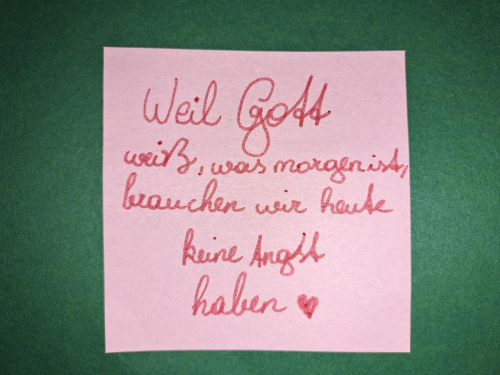 Weil Gott
weiß, was morgen ist,
brauchen wir heute
keine Angst
haben ♥